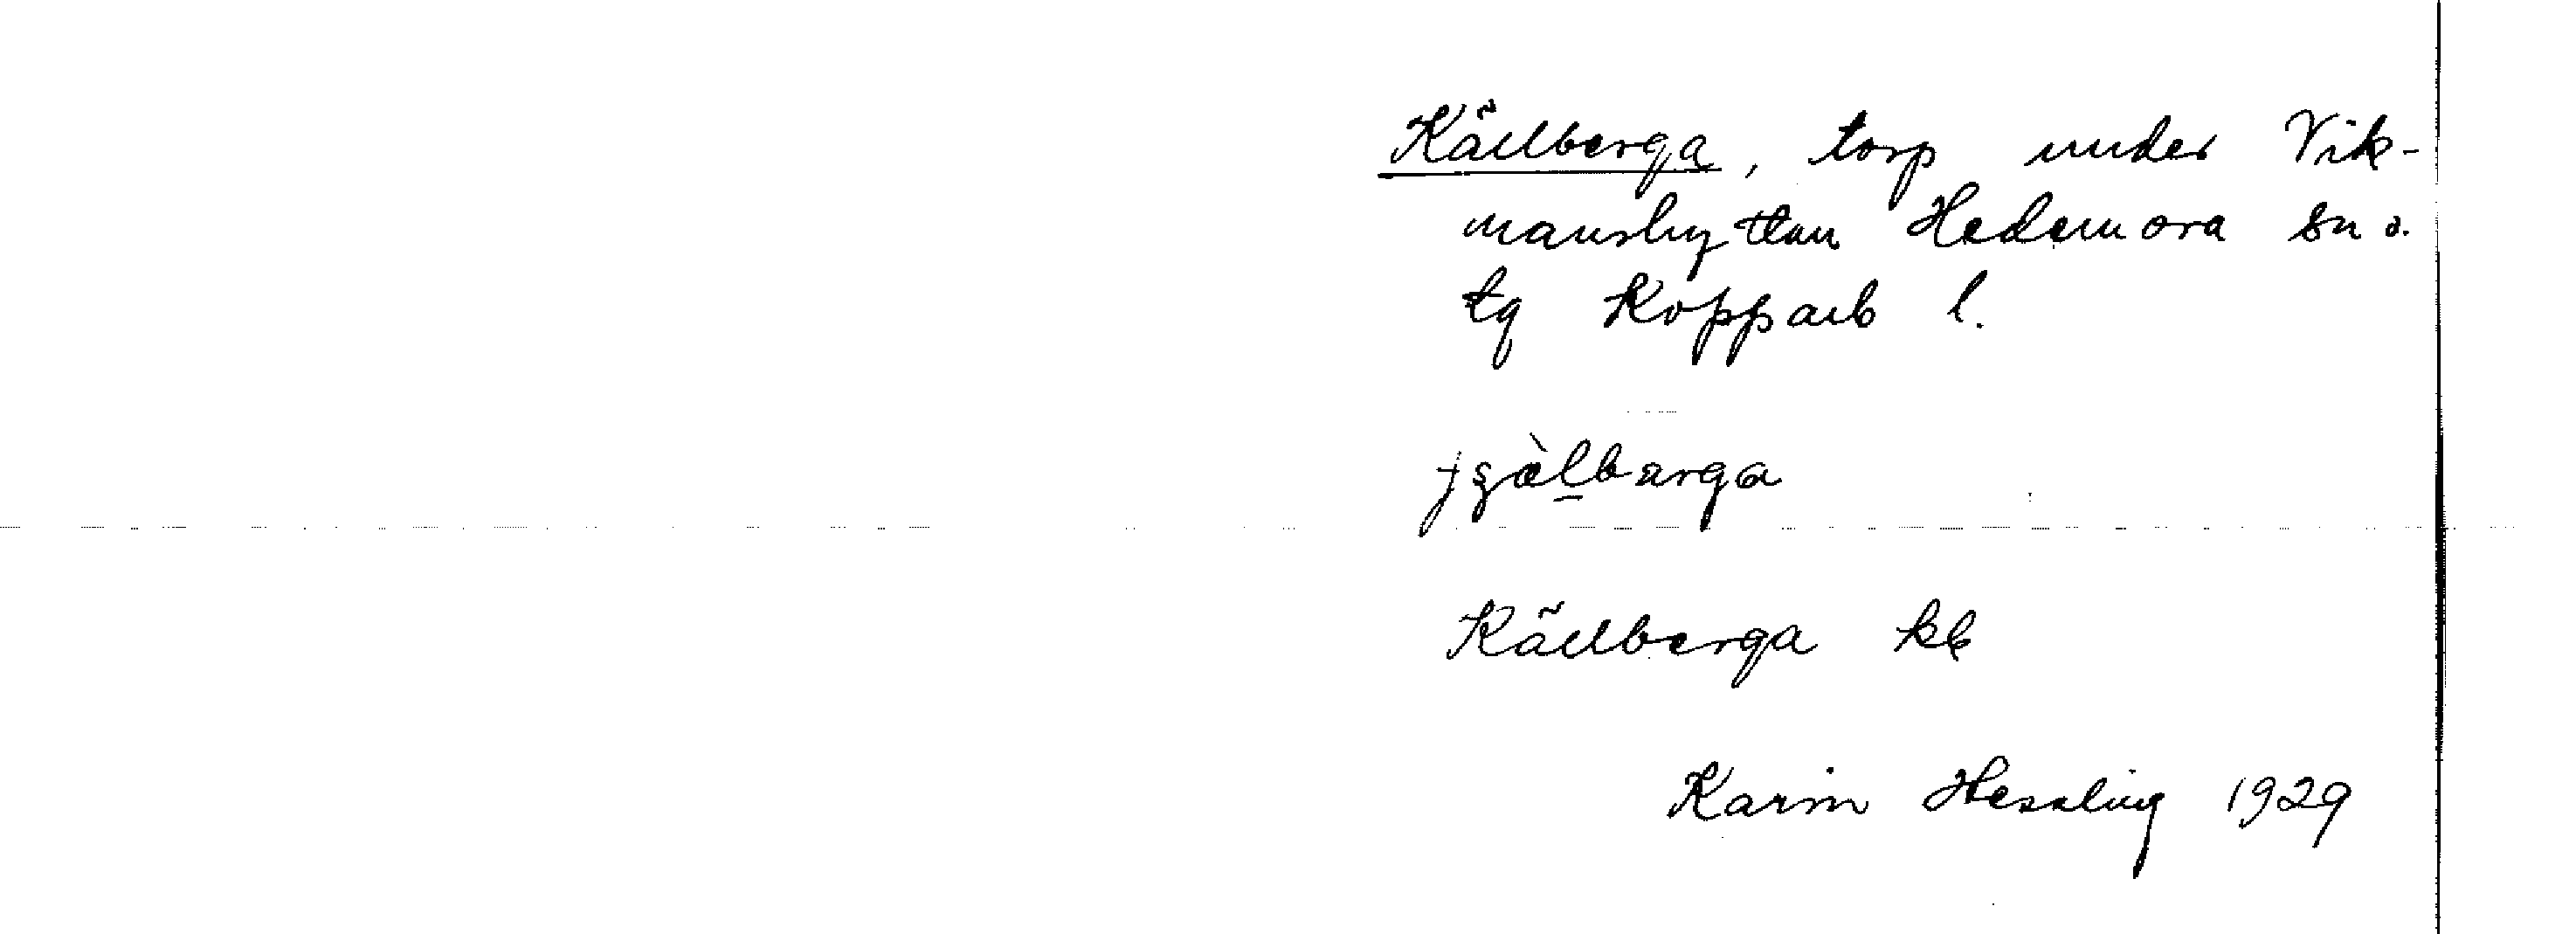 Källberga, torp under Vik-
manshyttan Hedemora sn o.
tg Kopparb l.
Källberga kb
Karin Hessling 1929